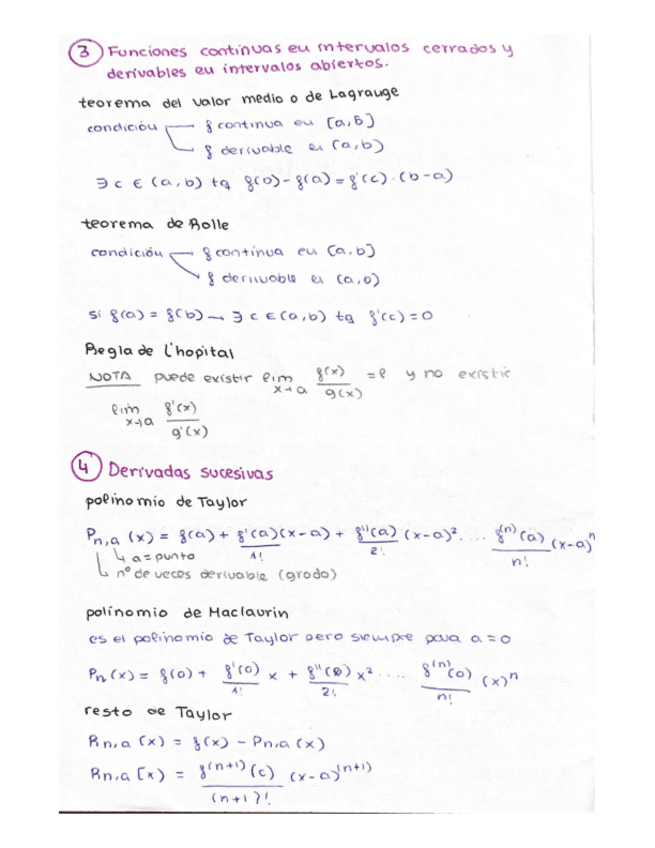 3 Funciones continuas en intervalos cerrados y
derivables en intervalos abiertos.
teorema del valor medio o de Lagrange
condición f continua en [a,b]
f derivable en (a,b)
∃ c ∈ (a,b) tq f(b)-f(a) = f'(c)·(b-a)
teorema de Rolle
condición f contínua en [a,b]
f derivable en (a,b)
si f(a) = f(b) → ∃ c ∈ (a,b) tq f'(c)=0
Regla de l'hopital
NOTA puede existir lim x→a f(x)/g(x) = l y no existir
lim x→a f'(x)/g'(x)
4 Derivadas sucesivas
polinomio de Taylor
Pn,a (x) = f(a) + f'(a)(x-a)/1! + f''(a)/2! (x-a)² .... f⁽ⁿ⁾(a)/n! (x-a)ⁿ
a = punto
nº de veces derivable (grado)
polinomio de Maclaurin
es el polinomio de Taylor pero siempre para a = 0
Pn (x) = f(0) + f'(0)/1! x + f''(0)/2! x² .... f⁽ⁿ⁾(0)/n! (x)ⁿ
resto de Taylor
Rn,a (x) = f(x) - Pn,a (x)
Rn,a (x) = f⁽ⁿ⁺¹⁾(c)/(n+1)! (x-a)⁽ⁿ⁺¹⁾